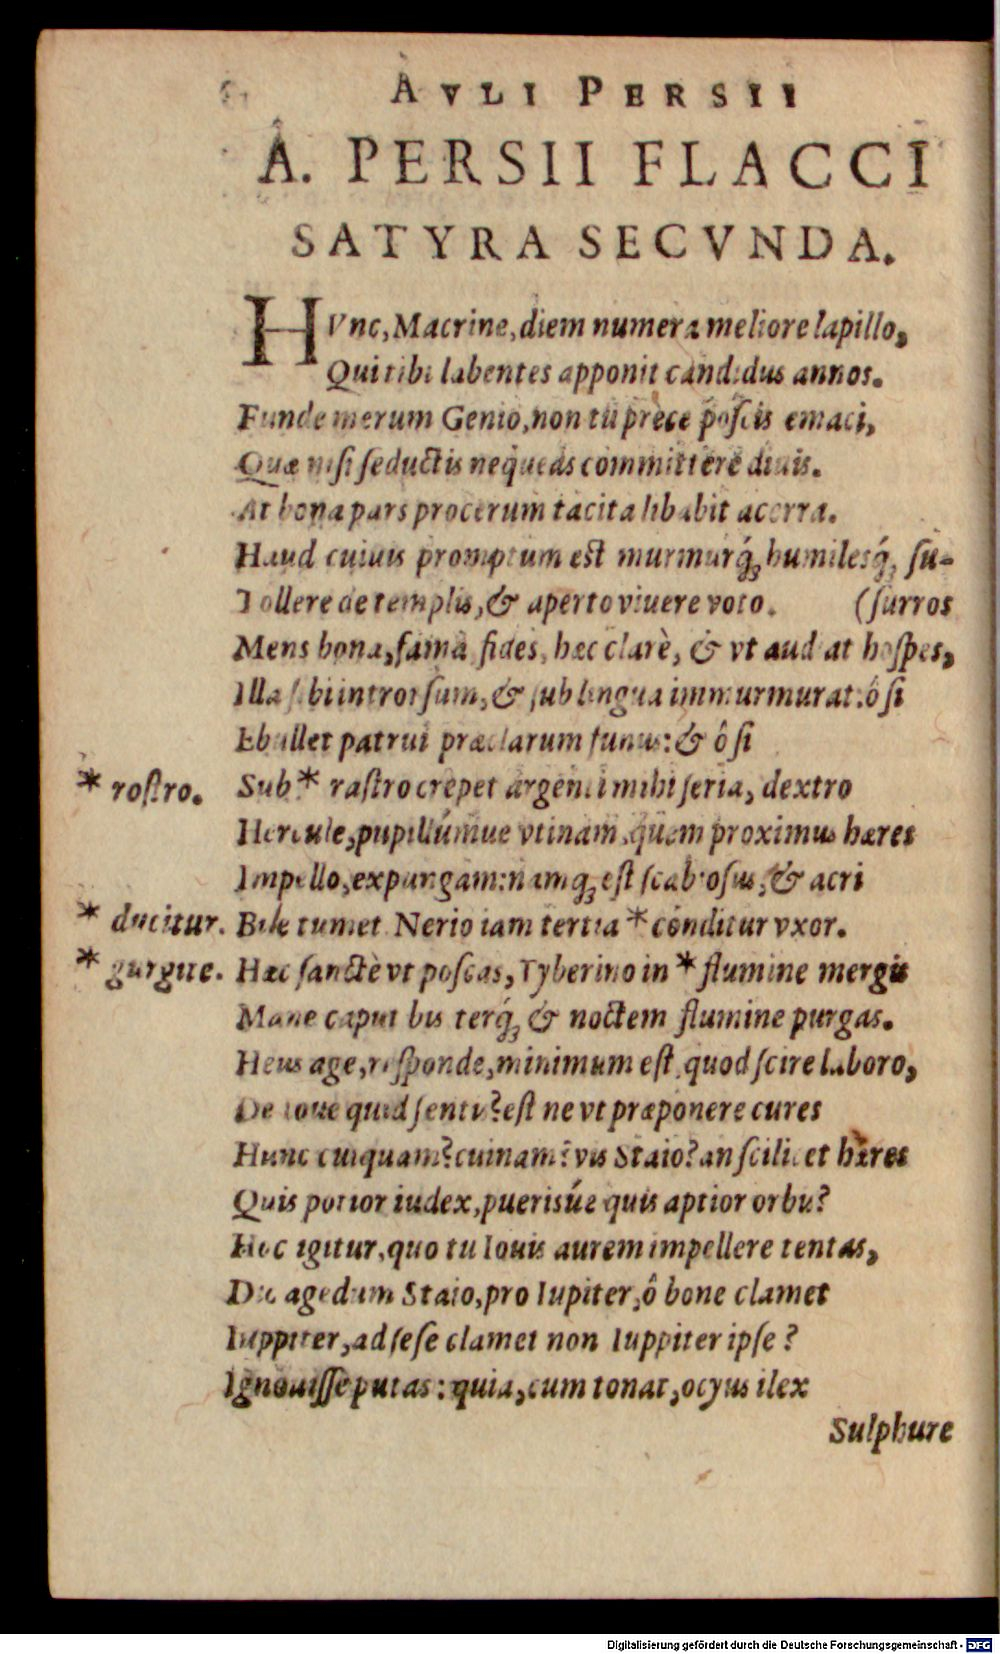 AVLI PERSII
A. PERSII FLACCI
SATYRA SECVNDA.
HVnc, Macrine, diem numera meliore lapillo,
Qui tibi labentes apponit candidus annos.
Funde merum Genio, non tu prece poscis emaci,
Quæ nisi seductis nequeas committere diuis.
At bona pars procerum tacita libabit acerra.
Haud cuiuis promptum est murmurq́; humilesq́; su-
Tollere de templis, & aperto viuere voto. (surros
Mens bona, fama fides, hæc clarè, & vt audiat hospes,
Illa sibi introrsum, & sub lingua immurmurat: ô si
Ebullet patrui præclarum funus: & ô si
* rostro. Sub * rastro crepet argenti mihi seria, dextro
Hercule, pupillúmue vtinam, quem proximus hæres
Impello, expungam: namq; est scabiosus, & acri
* ducitur. Bile tumet Nerio iam tertia * conditur vxor.
* gurgite. Hæc sanctè vt poscas, Tyberino in * flumine mergis
Mane caput bis terq́; & noctem flumine purgas.
Heus age, responde, minimum est, quod scire laboro,
De Ioue quid sentis? est ne vt præponere cures
Hunc cuiquam? cuinam? vis Staio? an scilicet hæres
Quis potior iudex, puerisúe quis aptior orbis?
Hoc igitur, quo tu Iouis aurem impellere tentas,
Dic agedum Staio, pro Iupiter, ô bone clamet
Iuppiter, ad sese clamet non Iuppiter ipse?
Ignouisse putas: quia, cum tonat, ocyus ilex
Sulphure
Digitalisierung gefördert durch die Deutsche Forschungsgemeinschaft - DFG